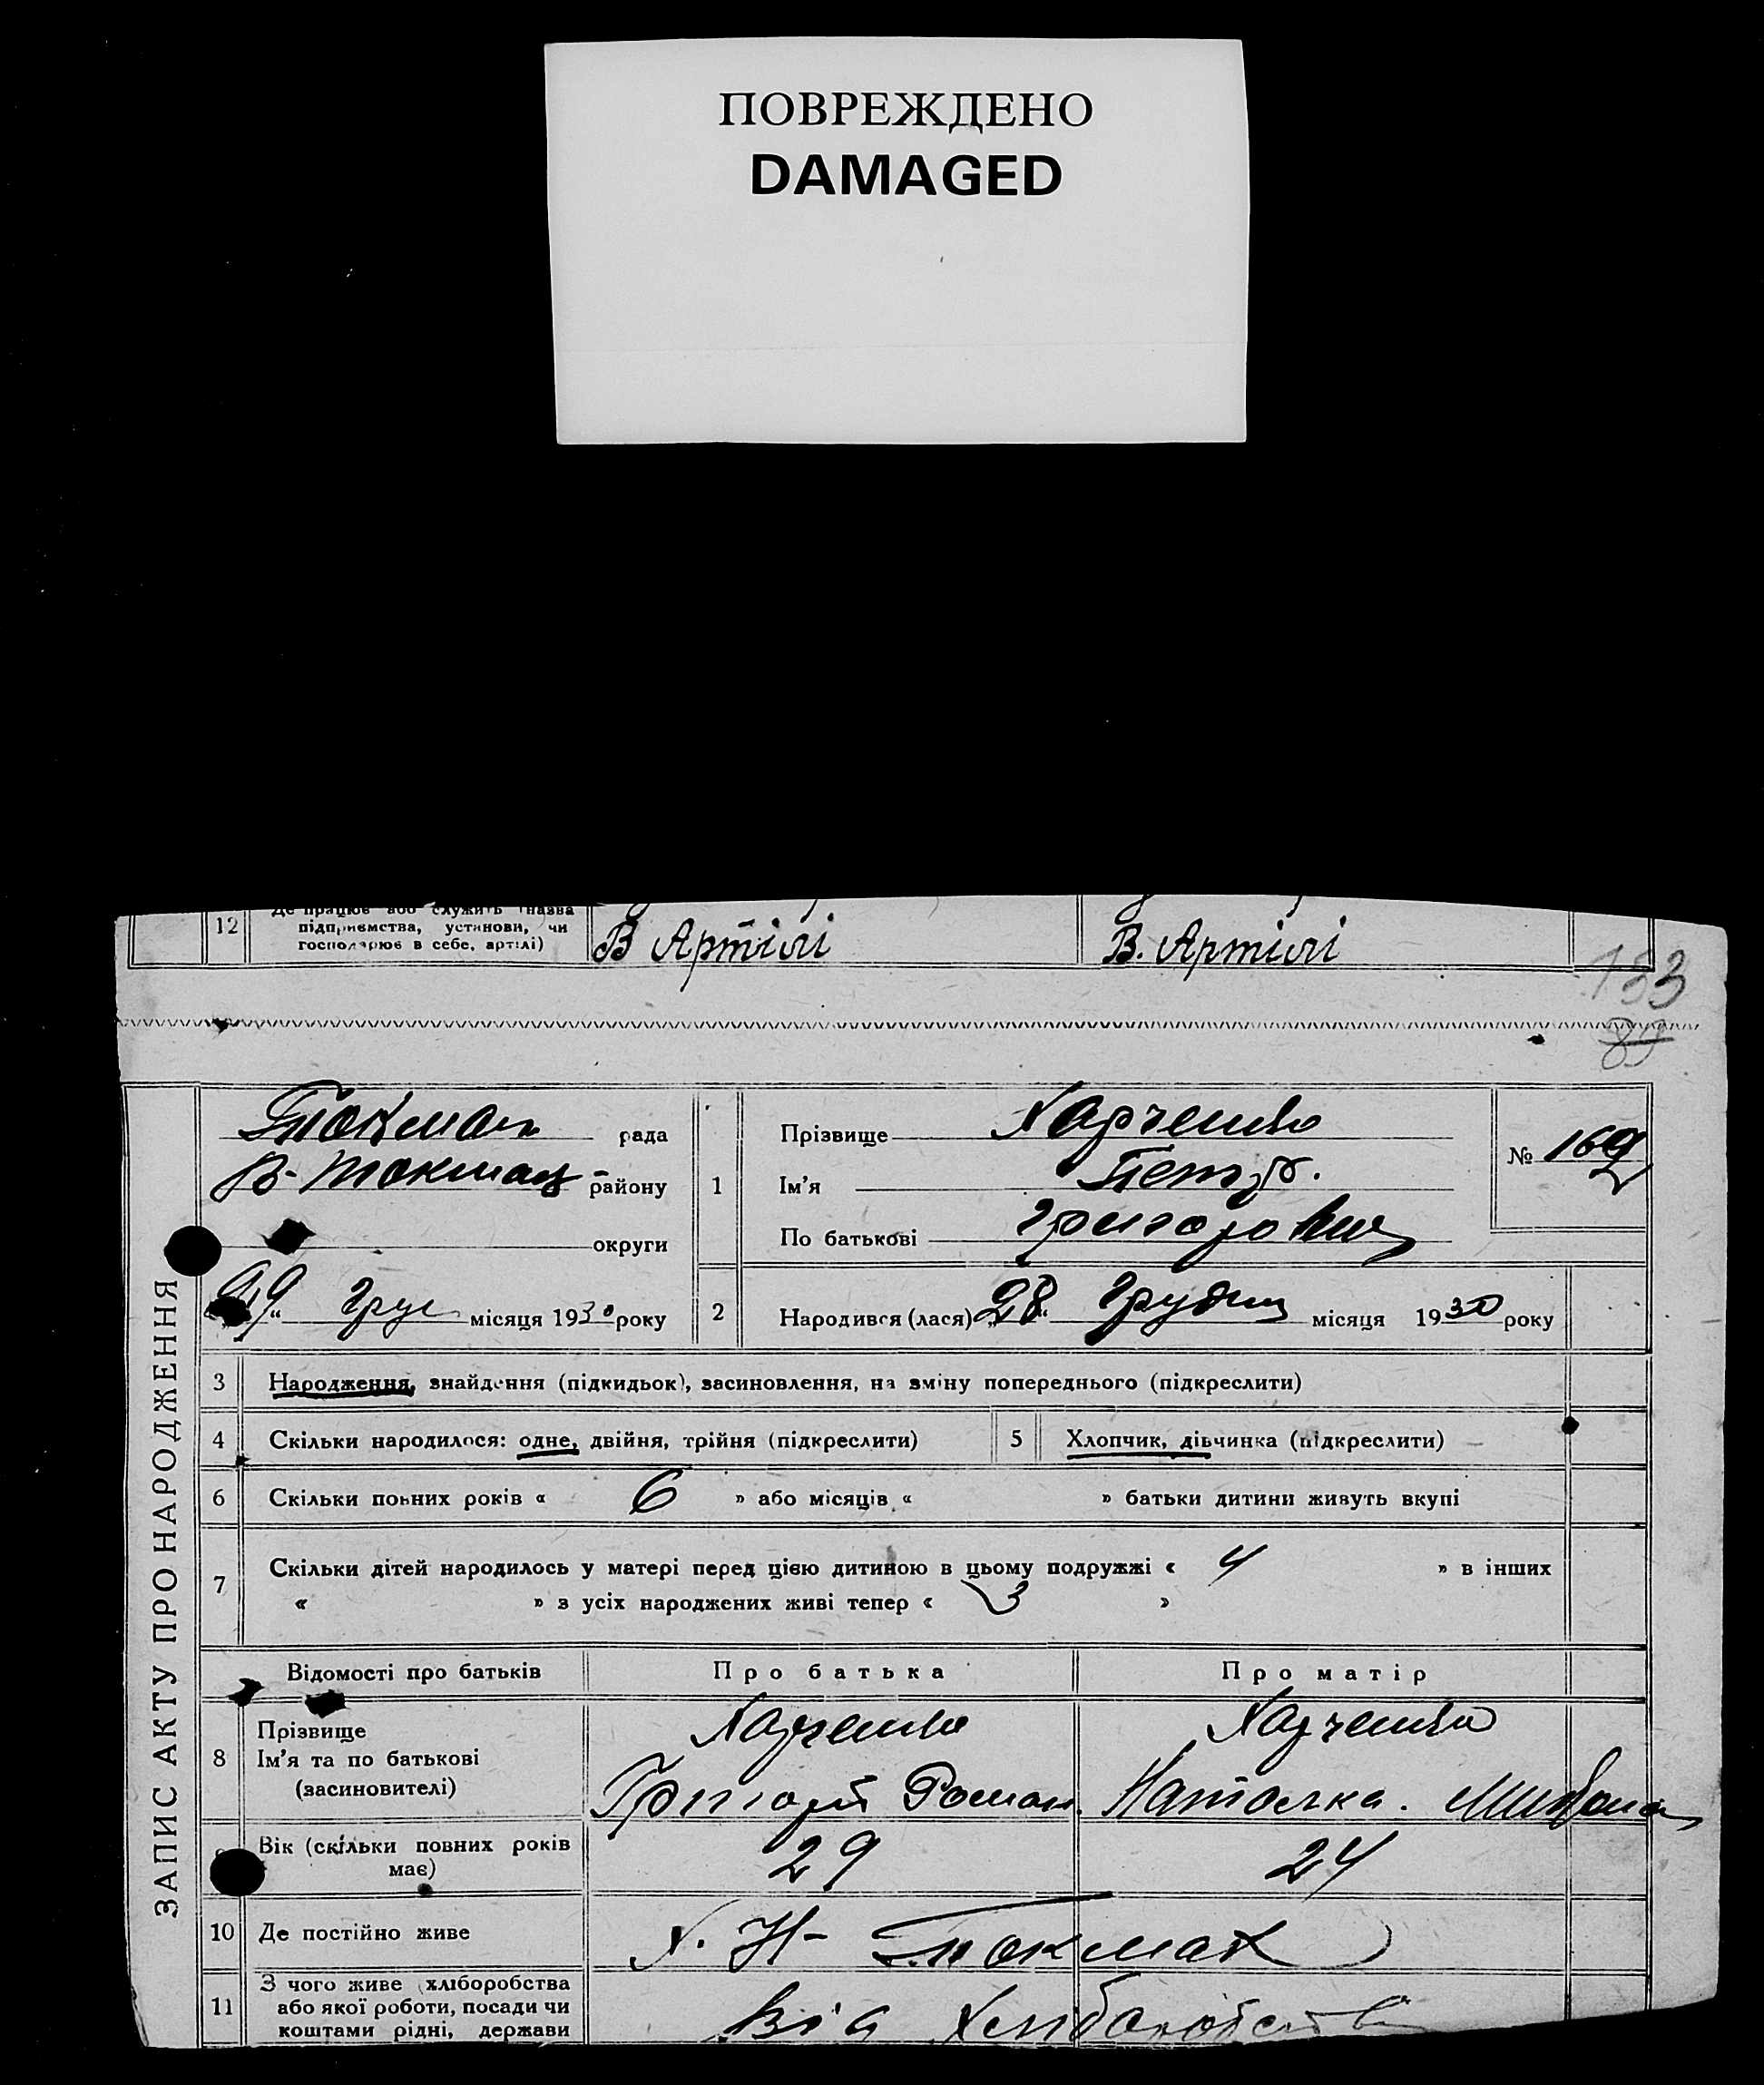 ПОВРЕЖДЕНО
DAMAGED
12 Де працює або служить (назва
підприємства, установи, чи
господарює в себе, артілі)
В Артілі
В. Артілі
133
89
ЗАПИС АКТУ ПРО НАРОДЖЕННЯ
Токмак рада
В-Токмац району
округи
29 " Груд місяця 1930 року
1 Прізвище Харченко
Ім'я Петро.
По батькові Григорович
№ 169
2 Народився (лася) „28" Грудня місяця 1930 року
3 Народження, знайдення (підкидьок), засиновлення, на зміну попереднього (підкреслити)
4 Скільки народилося: одне, двійня, трійня (підкреслити)
5 Хлопчик, дівчинка (підкреслити)
6 Скільки повних років « 6 » або місяців « » батьки дитини живуть вкупі
7 Скільки дітей народилось у матері перед цією дитиною в цьому подружжі « 4 » в інших
« » з усіх народжених живі тепер « 3 »
Відомості про батьків Про батька Про матір
8 Прізвище
Ім'я та по батькові
(засиновителі)
Харченко
Григорій Роман.
Харченко
Наталка.
Вік (скільки повних років
має)
29
24
10 Де постійно живе
Х. Н-Токмак
11 З чого живе (хліборобства
або якої роботи, посади чи
коштами рідні, держави
Від Хліборобства